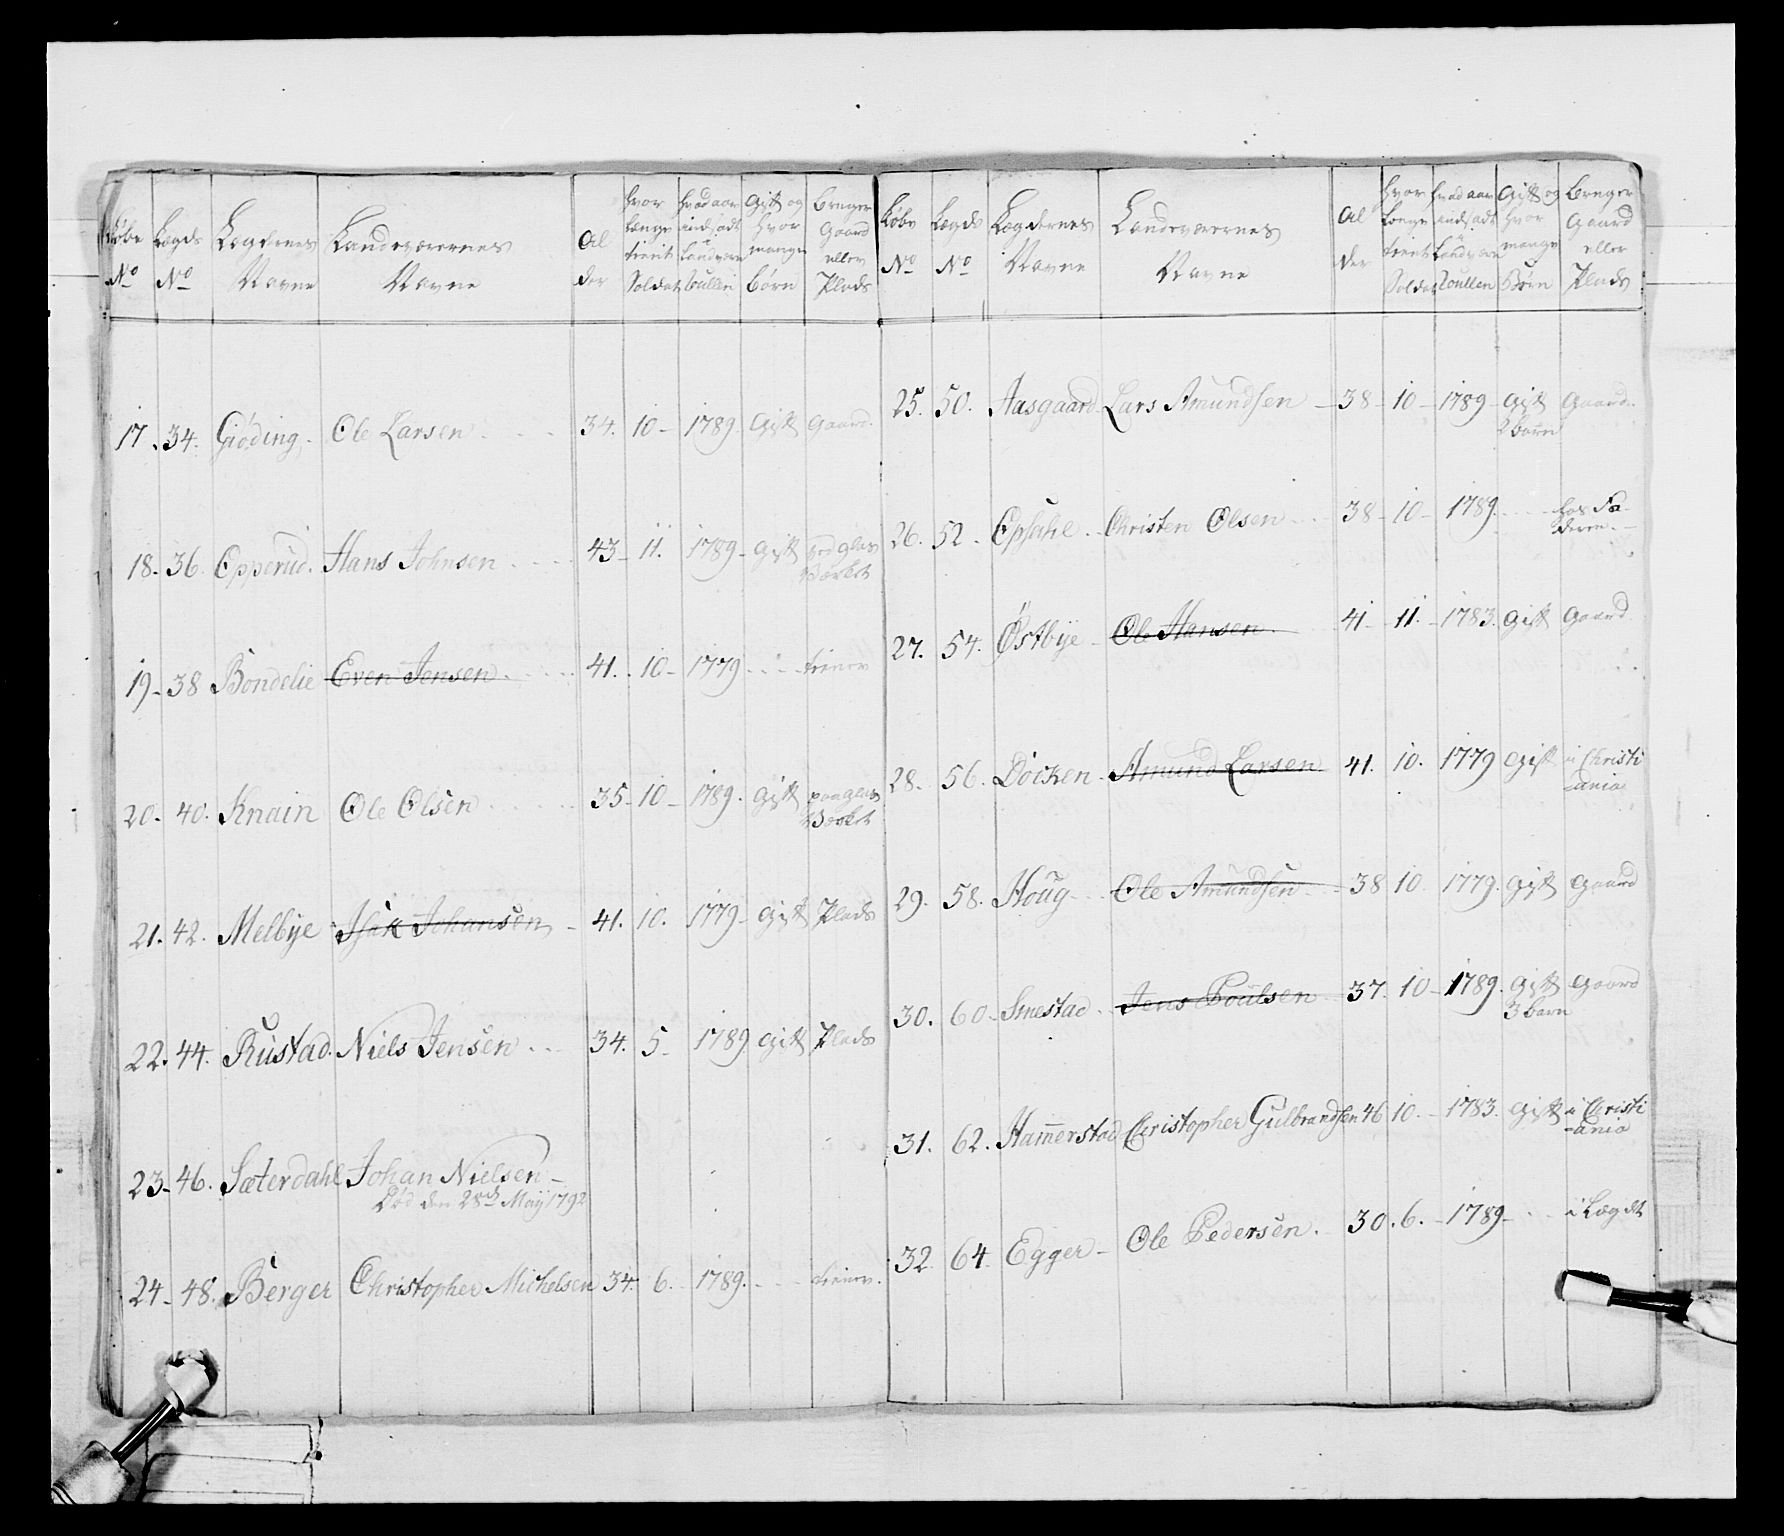 Løbe No Lægds No Lægdernes Navne Landeværernes Navne Al der hvor længe tient Soldat hvad aar indsadt i Landværn Roullen Gift og hvor mange børn bruger Gaard eller Plads
17. 34. Giøding. Ole Larsen 34. 10 - 1789. Gift Gaard.
18. 36. Epperud. Hans Johnsen 43 - 11. 1789 - Gift ved glas
Værket
19 - 38 Bondelie Even Jensen 41. 10 - 1779 tiener
20. 40. Knain Ole Olsen 35 - 10 - 1789. Gift paa glas
Værket
21. 42. Melbye Isak Johansen - 41. 10. 1779 - Gift Plads
22. 44. Rustad. Niels Jensen 34. 5 - 1789 Gift Plads
23 - 46. Sæterdahl Johan Nielsen -
Død den 28de Maij 1792
24 - 48. Berger Christopher Michelsen 34. 6. 1789. tiener.
Løbe No Lægds No Lægdernes Navne Landeværernes Navne Al der hvor længe tient Soldat hvad aar indsadt i Landværn Roullen Gift og hvor mange Børn bruger Gaard eller Plads
25. 50. Aasgaard. Lars Amundsen - 38 - 10 - 1789 - Gift Gaard.
2 børn
26. 52. Epsahl. Christen Olsen 38 - 10 - 1789. hos Fa-
deren.
27. 54. Østbye - Ole Hansen. 41 - 11. - 1783. Gift Gaard
28. 56. Döcken. Amund Larsen 41. 10. 1779 Gift i Christi
-ania
29. 58. Houg Ole Amundsen 38 10. 1779. Gift Gaard
30. 60. Smestad. Jens Poulsen 37. 10 - 1789. Gift Gaard
3 børn
31. 62. Hammerstad Christopher Gulbrandsen 46 10. - 1783. Gift i Christi
-ania
32. 64. Egger - Ole Pedersen. 30. 6. - 1789 - i Lægdt